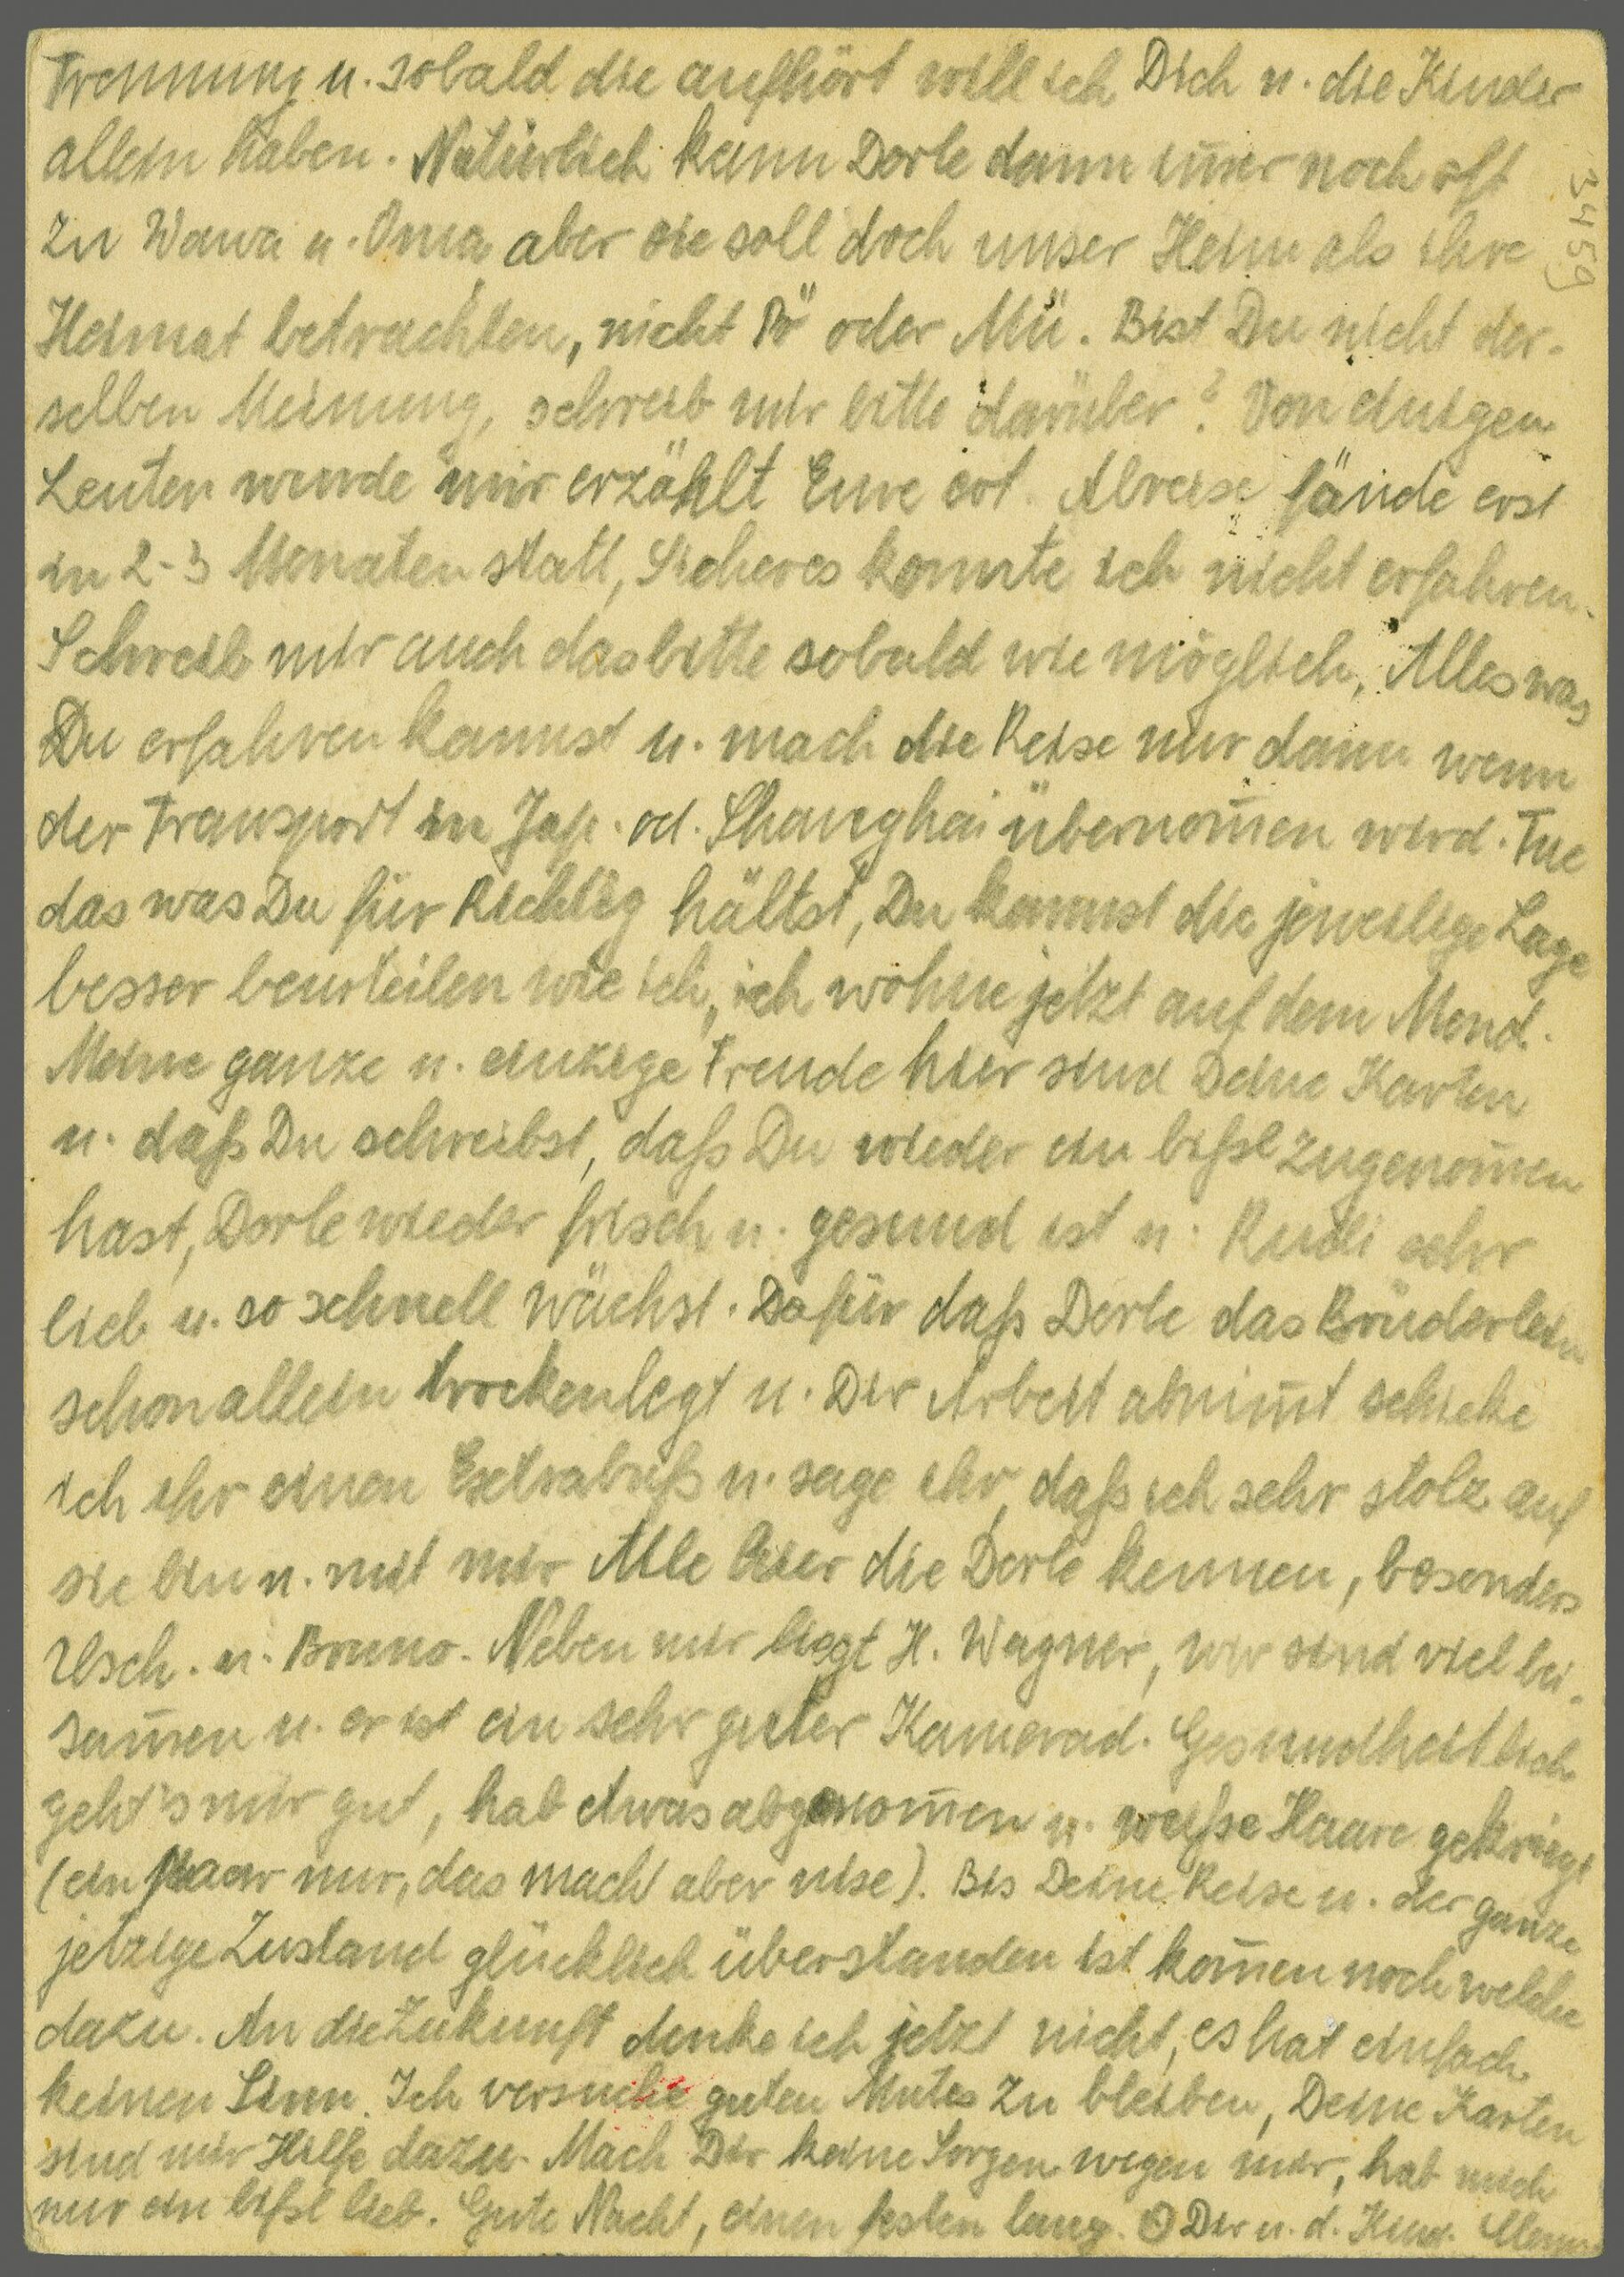 Trennung u. sobald die aufhört will ich Dich u. die Kinder
allein haben. Natürlich kann Dorle dann im̄er noch oft
zu Wawa u. Oma aber sie soll doch unser Heim als ihre
Heimat betrachten, nicht Pö oder Mü. Bist Du nicht der-
selben Meinung, schreib mir bitte darüber? Von einigen
Leuten wurde mir erzählt Eure evt. Abreise fände erst
in 2-3 Monaten statt, Sicheres konnte ich nicht erfahren.
Schreib mir auch das bitte sobald wie möglich, Alles was
Du erfahren kannst u. mach die Reise nur dann wenn
der Transport in Jap. od. Shanghai übernom̄en wird. Tue
das was Du für Richtig hältst, Du kannst die jeweilige Lage
besser beurteilen wie ich, ich wohne jetzt auf dem Mond.
Meine ganze u. einzige Freude hier sind Deine Karten
u. daß Du schreibst, daß Du wieder ein bißl zugenom̄en
hast, Dorle wieder frisch u. gesund ist u. Rudi sehr
lieb u. so schnell wächst. Dafür daß Dorle das Brüderlein
schon allein trockenlegt u. Dir Arbeit abnim̄t schicke
ich ihr einen Extrabuß u. sage ihr, daß ich sehr stolz auf
sie bin u. mit mir Alle hier die Dorle kennen, besonders
Usch. u. Bruno. Neben mir liegt H. Wagner, wir sind viel bei-
sam̄en u. er ist ein sehr guter Kamerad. Gesundheitlich
geht's mir gut, hab etwas abgenom̄en u. weiße Haare gekriegt
(ein paar nur, das macht aber nise). Bis Deine Reise u. der ganze
jetzige Zustand glücklich überstanden ist kom̄en noch welche
dazu. An die Zukunft denke ich jetzt nicht, es hat einfach
keinen Sinn. Ich versuche guten Mutes zu bleiben, Deine Karten
sind mir Hilfe dazu. Mach Dir keine Sorgen wegen mir, hab mich
nur ein bißl lieb. Gute Nacht, einen festen lang. Dir u. d. Kind.
34 59